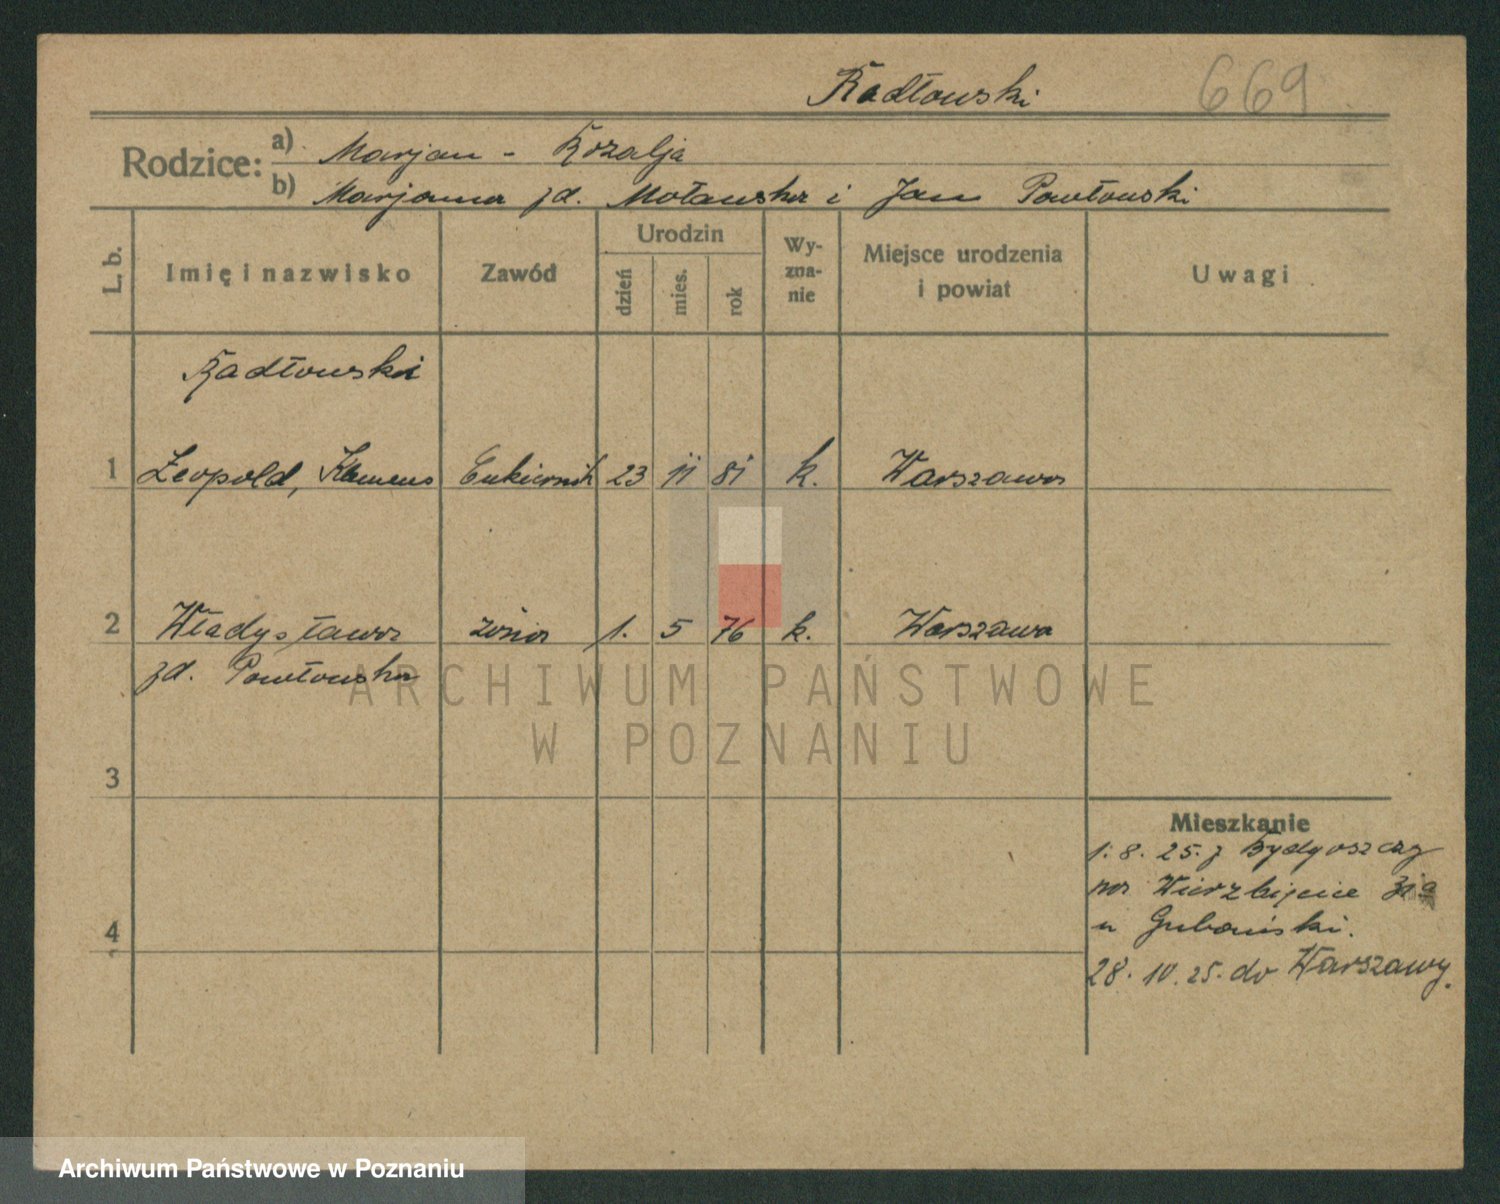 Radłowski 669
Rodzice: a) Marjan - Rozalja
b) Marjanna zd. Mołauska i Jan Pawłowski
L. b. Imię i nazwisko Zawód Urodzin Wy-zna-nie Miejsce urodzenia i powiat Uwagi
dzień mies. rok
Radłowski
1 Leopold, Klemens Cukiernik 23 11 81 k. Warszawa
2 Władysława żona 1. 5 76 k. Warszawa
zd. Pawłowska
ARCHIWUM PAŃSTWOWE
W POZNANIU
3
Mieszkanie
1. 8. 25. z Bydgoszczy
na Wierzbięcice
u
4
28. 10. 25. do Warszawy.
Archiwum Państwowe w Poznaniu